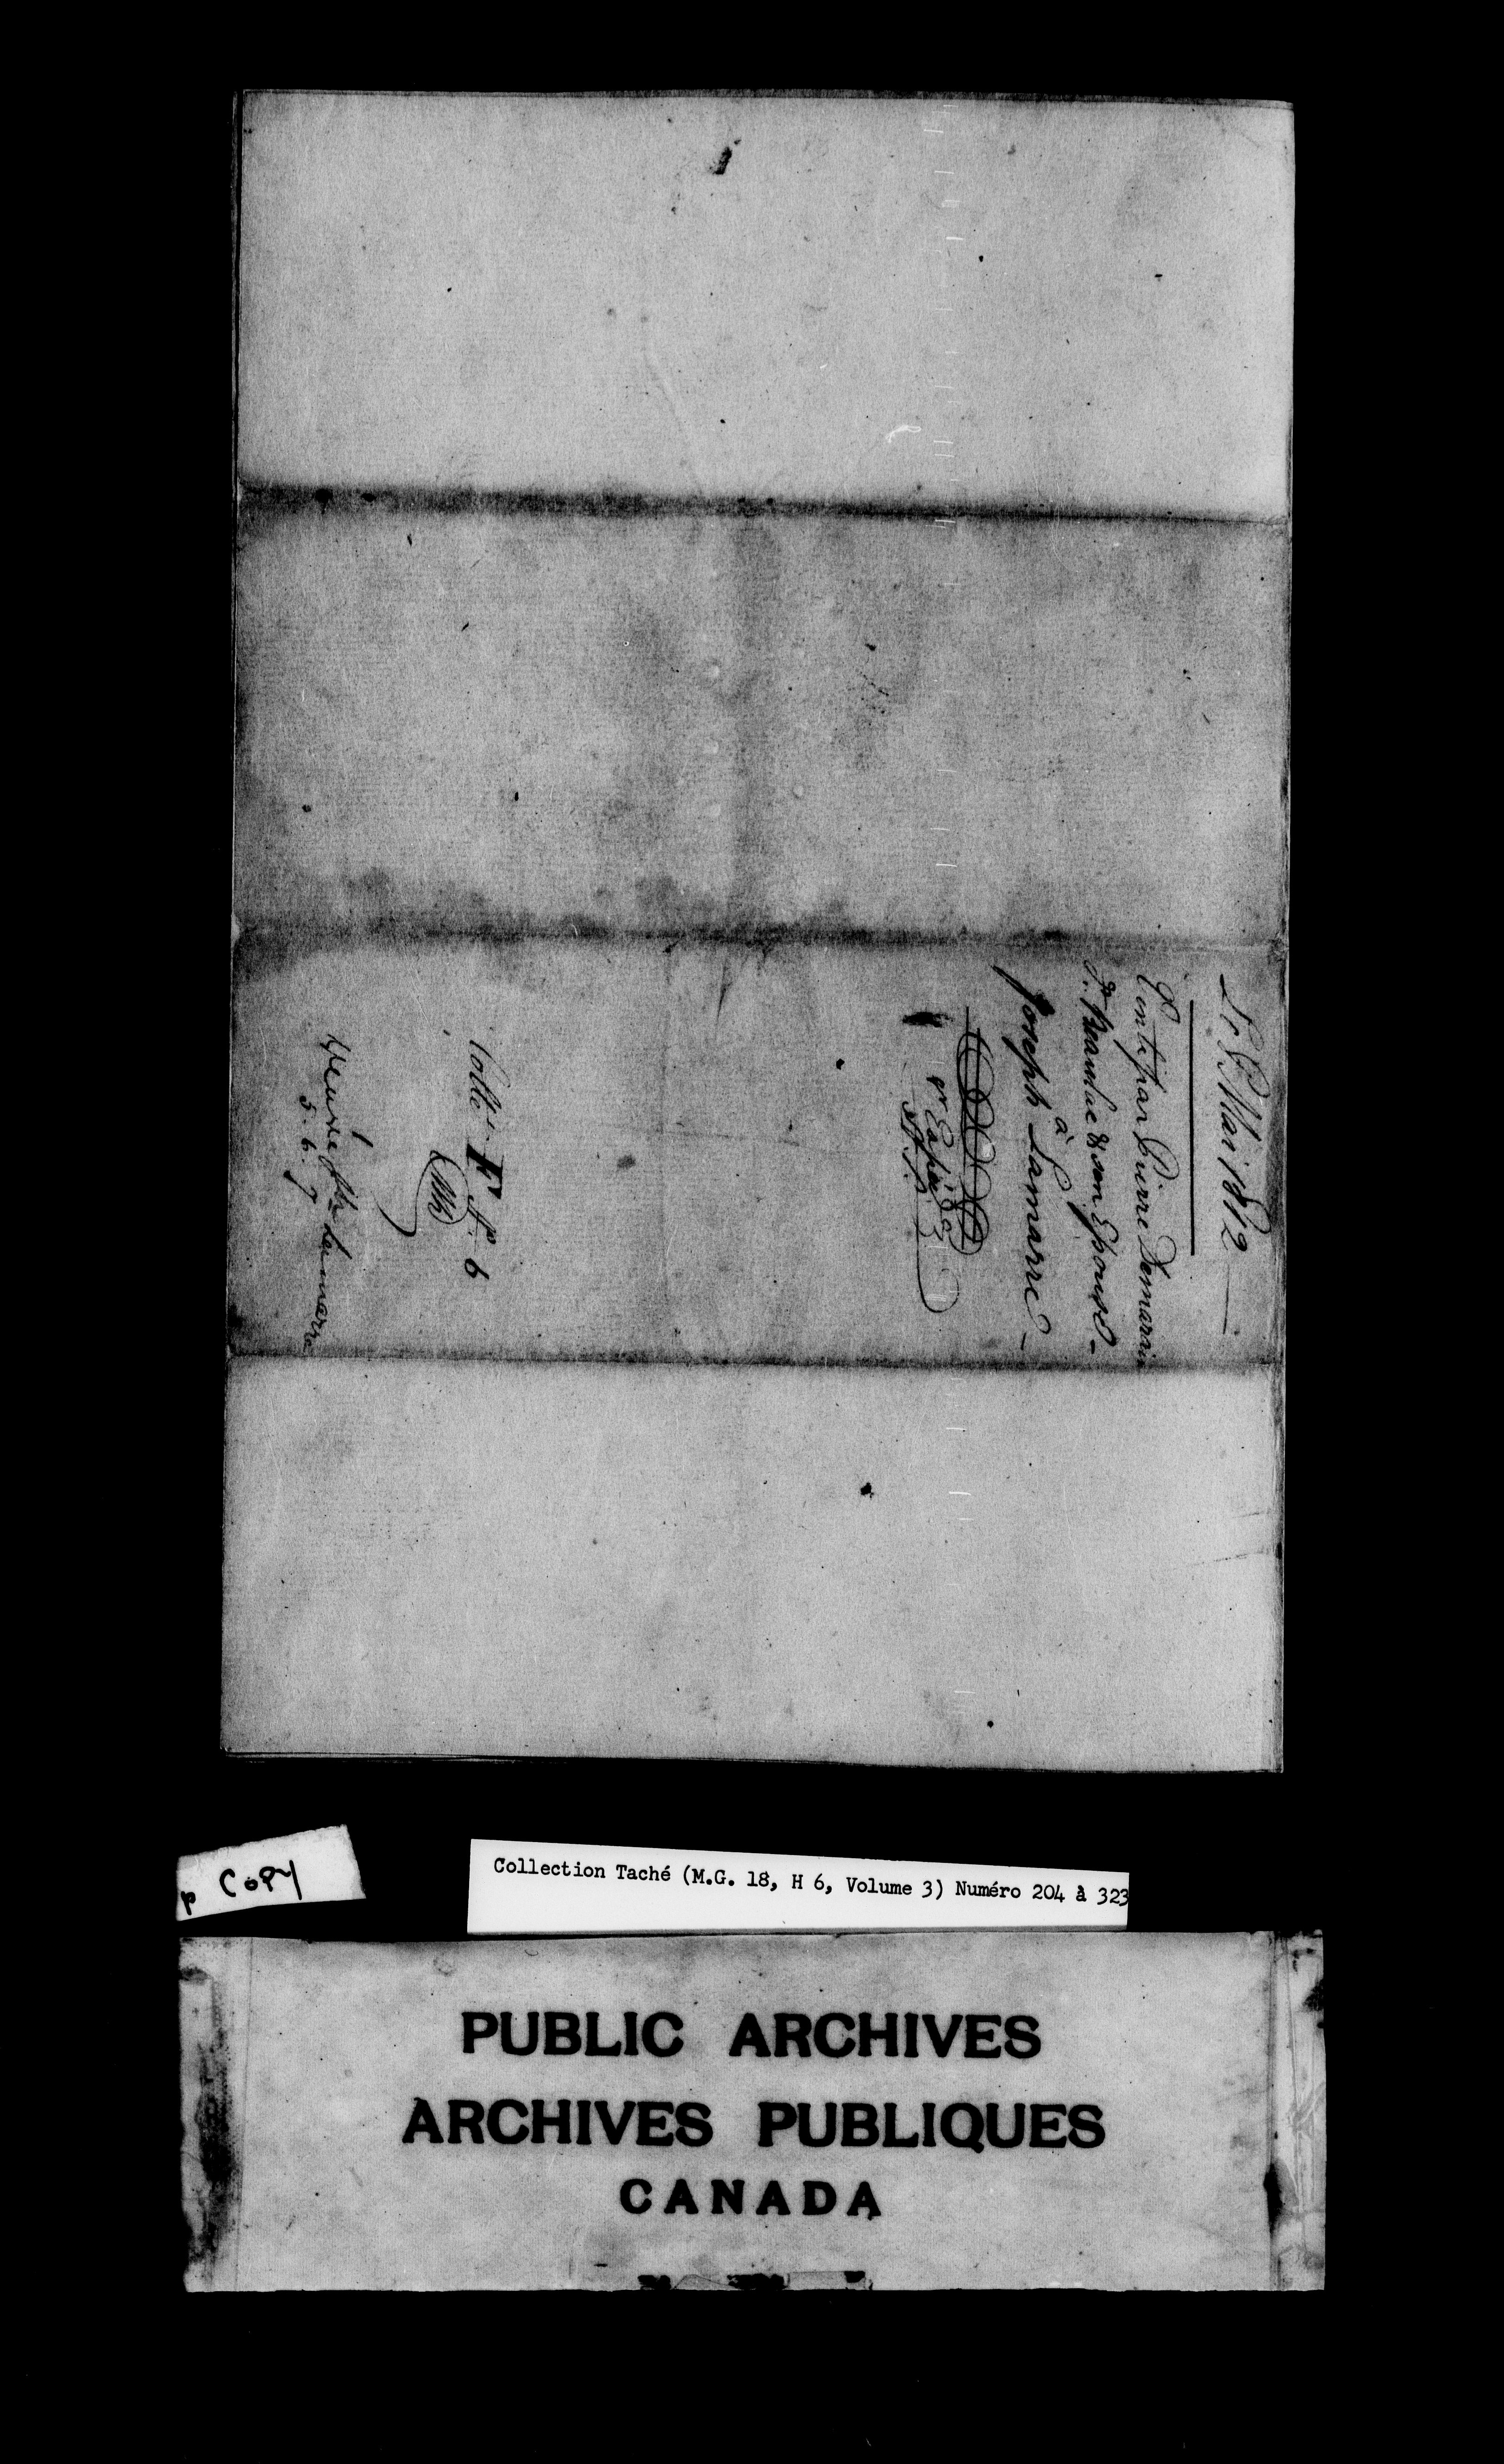 Le 5 Mai 1812
Vente par Pierre Démarais
& son Epouse -
à
Joseph Lamarre -
Cotté F. No. 6
Lamarre
5. 6. 7
COPY
Collection Taché (M.G. 18, H 6, Volume 3) Numéro 204 à 323
PUBLIC ARCHIVES
ARCHIVES PUBLIQUES
CANADA